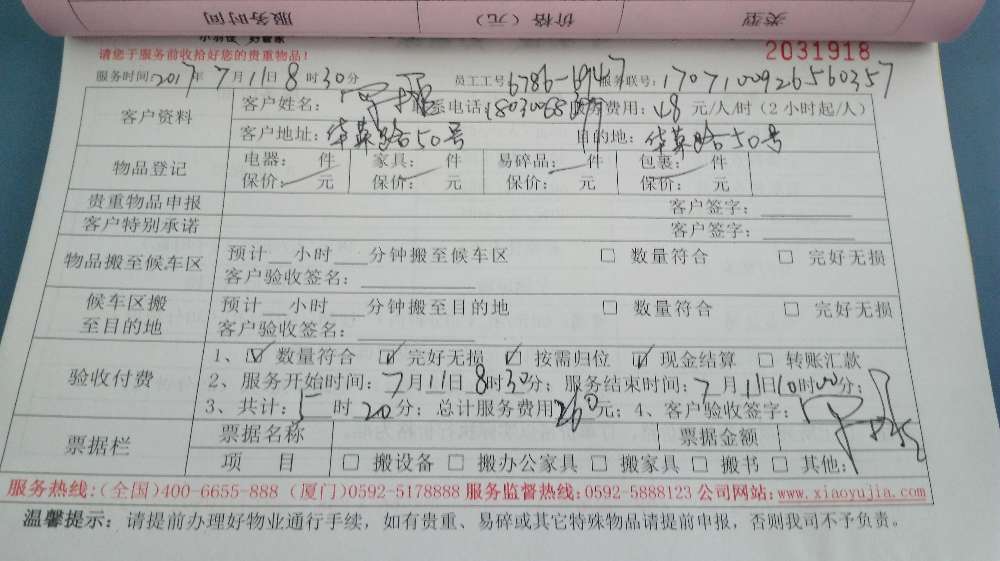 类型 价格（元） 服务时间
小羽佳 好管家
请您于服务前收拾好您的贵重物品! 2031918
服务时间:2017年7月11日8时30分 员工工号6786-6947 服务联号:17071009265603 57
客户资料 客户姓名: 联系电话: 服务费用:48元/人/时(2小时起/人)
客户地址:华英路50号 目的地:华英路50号
物品登记 电器: 件 家具: 件 易碎品: 件 包裹: 件
保价: 元 保价: 元 保价: 元 保价: 元
贵重物品申报 客户签字:
客户特别承诺 客户签字:
物品搬至候车区 预计__小时___分钟搬至候车区 □ 数量符合 □ 完好无损
客户验收签名:
候车区搬至目的地 预计__小时___分钟搬至目的地 □ 数量符合 □ 完好无损
客户验收签名:
验收付费 1、☑ 数量符合 ☑ 完好无损 ☑ 按需归位 ☑ 现金结算 □ 转账汇款
2、服务开始时间:7月11日8时30分; 服务结束时间:7月11日10时00分;
3、共计: 时20分; 总计服务费用260元; 4、客户验收签字:
票据栏 票据名称 票据金额
项 目 □ 搬设备 □ 搬办公家具 □ 搬家具 □ 搬书 □ 其他:
服务热线:(全国)400-6655-888 (厦门)0592-5178888 服务监督热线:0592-5888123 公司网站:www.xiaoyujia.com
温馨提示: 请提前办理好物业通行手续，如有贵重、易碎或其它特殊物品请提前申报，否则我司不予负责。